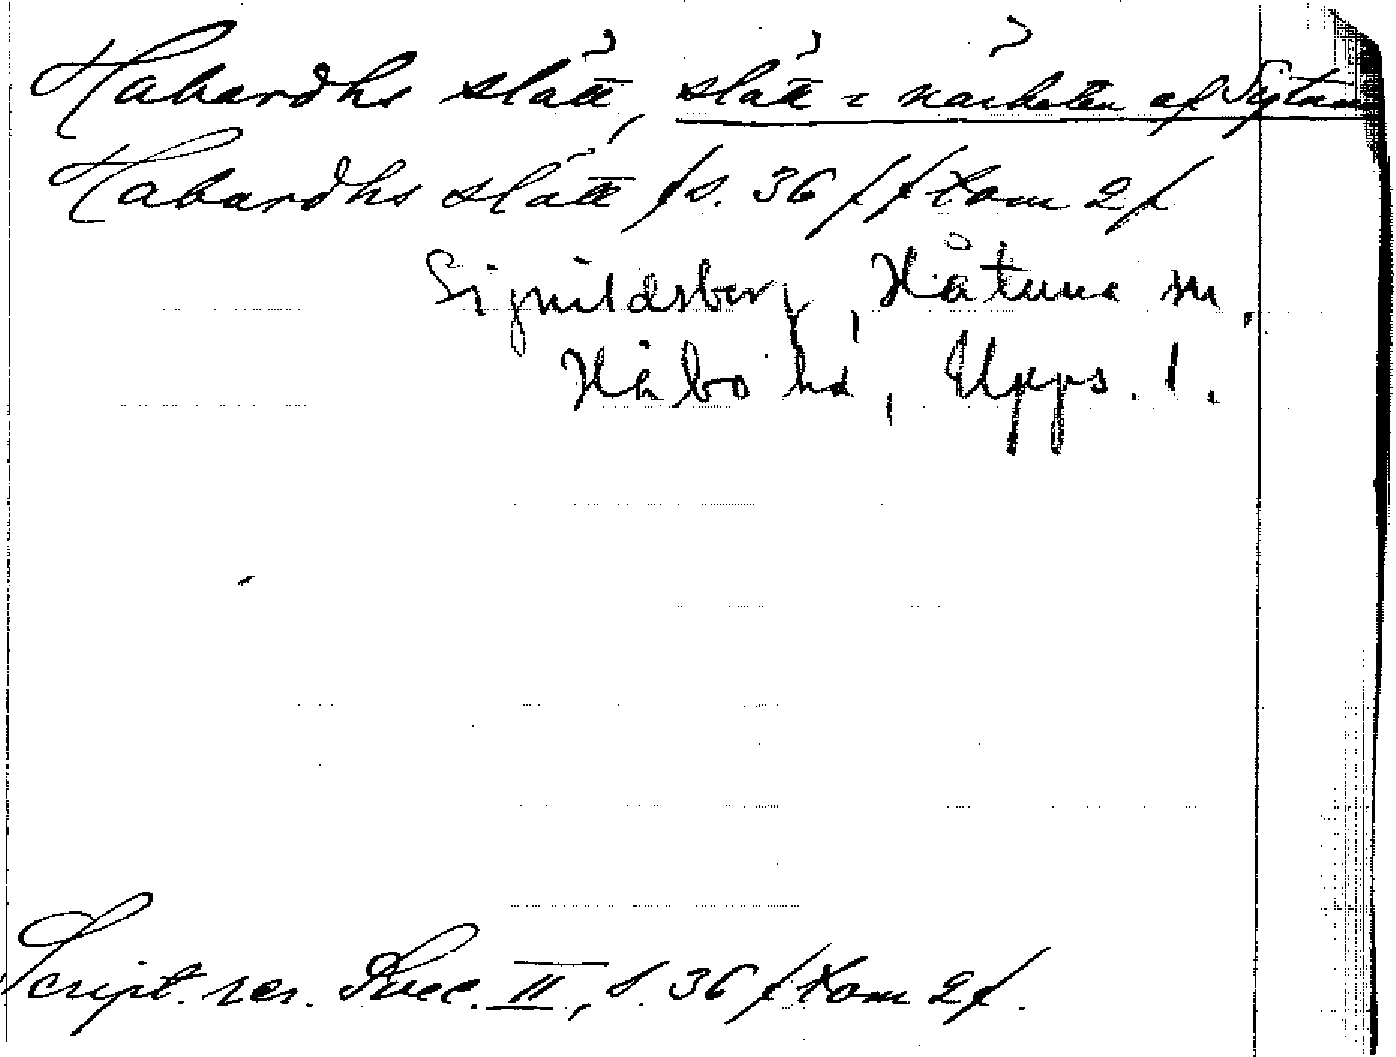 Habardhs slätt, slätt i närheten af Sigtuna
Habardhs slätt /s. 36/ /tom 2/
Signildsberg, Håtuna sn,
Håbo hd, Upps. l.
Script. rer. Svec. II, s. 36 /tom 2/.